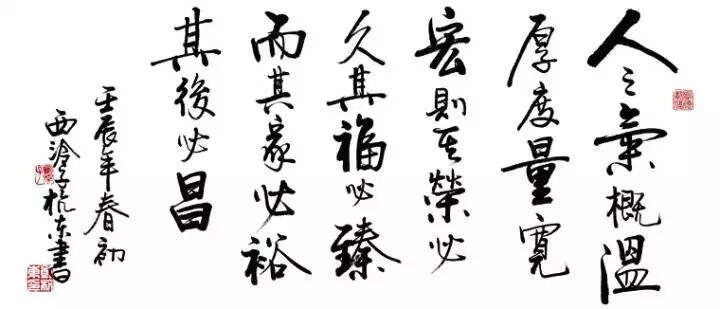 人之氣概溫
厚度量寬
宏則其榮必
久其福必臻
而其家必裕
其後必昌
壬辰年春初
西泠杭东書